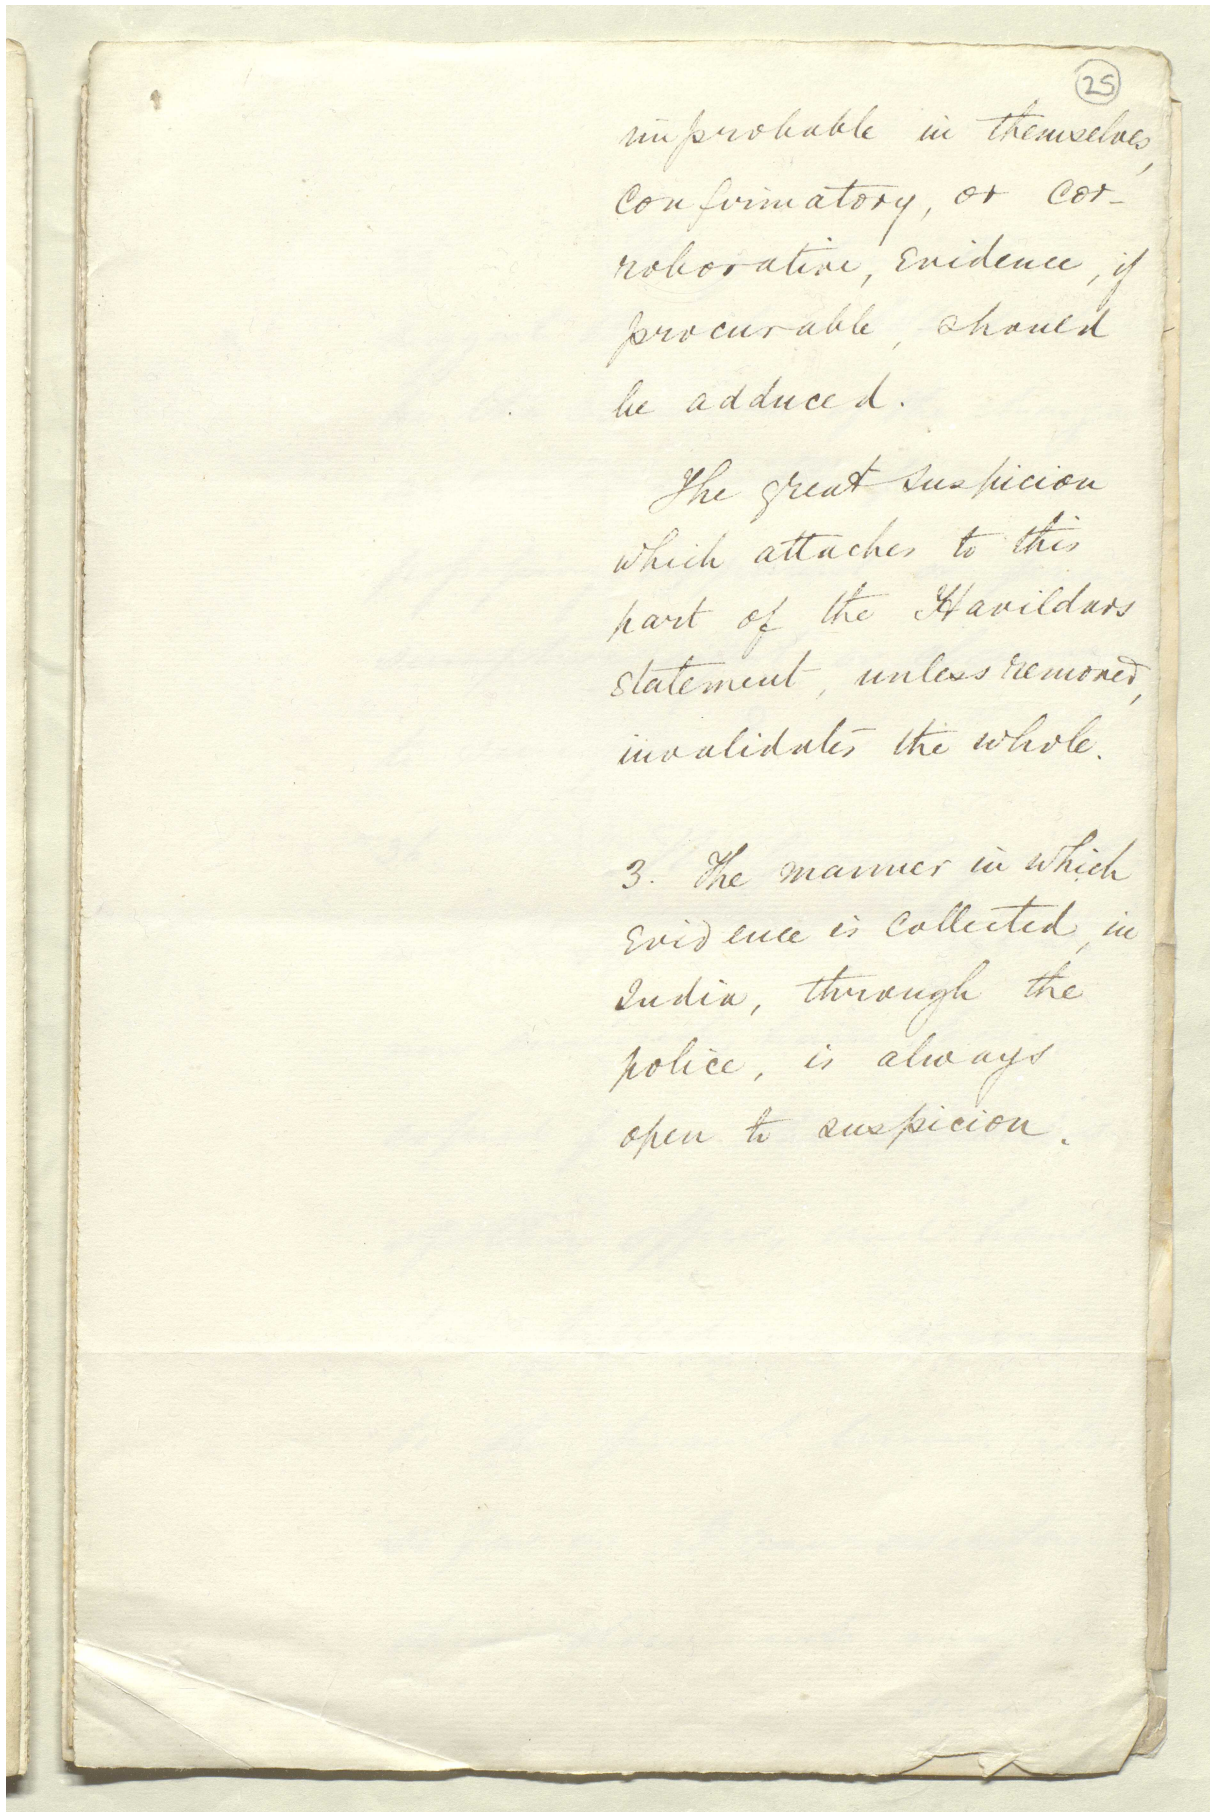 25
improbable in themselves,
Confirmatory, or Cor-
roborative, Evidence, if
procurable, should
be adduced.
The great suspicion
which attaches to this
part of the Havildars
statement, unless removed,
invalidates the whole.
3. The manner in which
Evidence is Collected, in
India, through the
police, is always
open to suspicion.